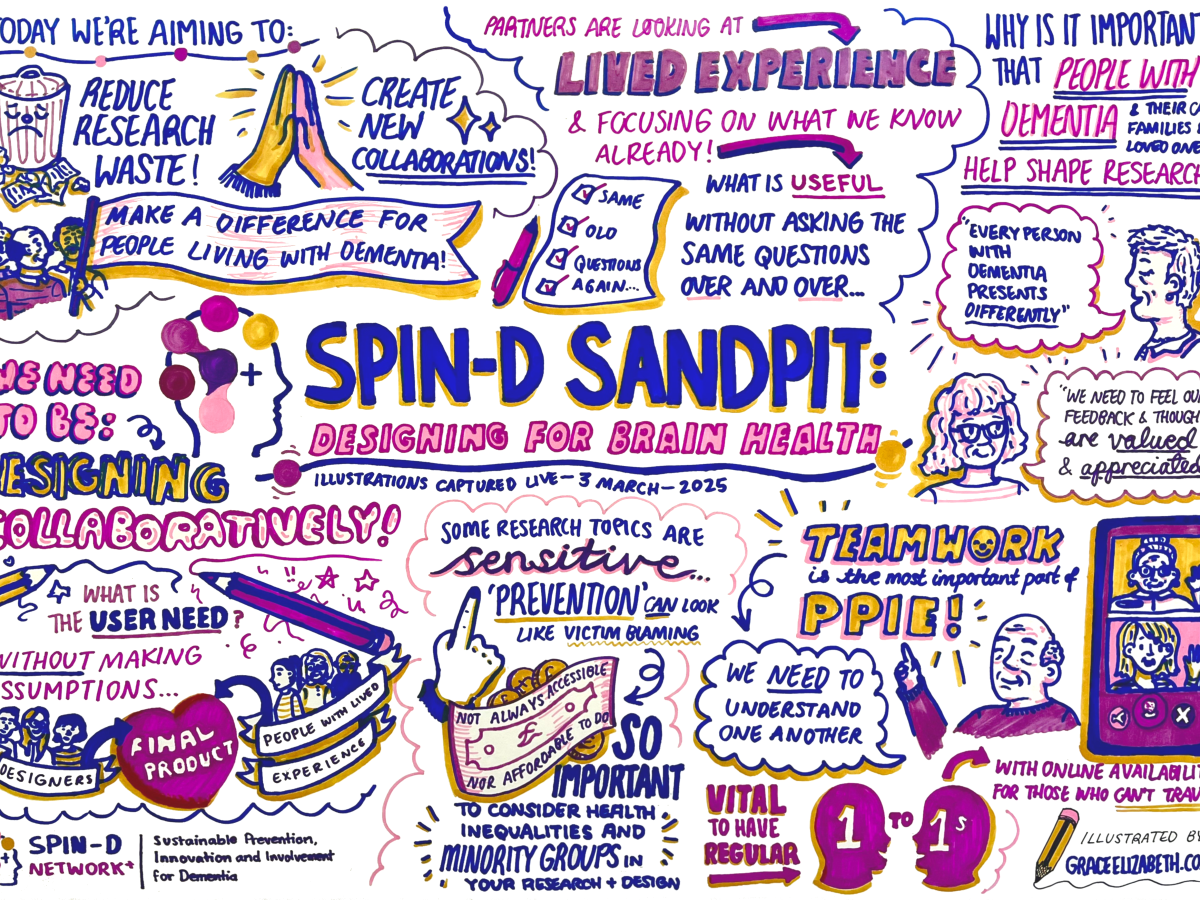 TODAY WE'RE AIMING TO:
REDUCE
RESEARCH
WASTE!
CREATE
NEW
COLLABORATIONS!
MAKE A DIFFERENCE FOR
PEOPLE LIVING WITH DEMENTIA!
PARTNERS ARE LOOKING AT
LIVED EXPERIENCE
& FOCUSING ON WHAT WE KNOW
ALREADY!
WHAT IS USEFUL
WITHOUT ASKING THE
SAME QUESTIONS
OVER AND OVER...
SAME
OLD
QUESTIONS
AGAIN...
WHY IS IT IMPORTANT
THAT PEOPLE WITH
DEMENTIA
& THEIR
FAMILIES
LOVED
HELP SHAPE RESEARCH
"EVERY PERSON
WITH
DEMENTIA
PRESENTS
DIFFERENTLY"
"WE NEED TO FEEL OUR
FEEDBACK & THOUGH
are valued
& appreciated
SPIN-D SANDPIT:
DESIGNING FOR BRAIN HEALTH
ILLUSTRATIONS CAPTURED LIVE - 3 MARCH - 2025
WE NEED
TO BE:
DESIGNING
COLLABORATIVELY!
WHAT IS
THE USER NEED?
WITHOUT MAKING
SSUMPTIONS...
DESIGNERS
FINAL
PRODUCT
PEOPLE WITH LIVED
EXPERIENCE
SPIN-D
NETWORK+
Sustainable Prevention,
Innovation and Involvement
for Dementia
SOME RESEARCH TOPICS ARE
sensitive...
'PREVENTION' CAN LOOK
LIKE VICTIM BLAMING
NOT ALWAYS ACCESSIBLE
£
NOR AFFORDABLE TO DO
SO
IMPORTANT
TO CONSIDER HEALTH
INEQUALITIES AND
MINORITY GROUPS IN
YOUR RESEARCH + DESIGN
TEAMWORK
is the most important part of
PPIE!
WE NEED TO
UNDERSTAND
ONE ANOTHER
VITAL
TO HAVE
REGULAR
1 TO 1s
WITH ONLINE AVAILABILIT
FOR THOSE WHO CAN'T TRAV
ILLUSTRATED BY
GRACEELIZABETH.CO